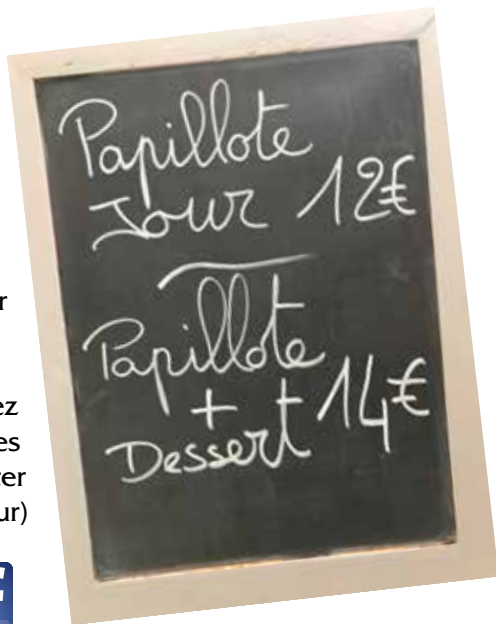 Papillote
Jour 12€
Papillote
+ 14€
Dessert
r
ez
es
er
ur)